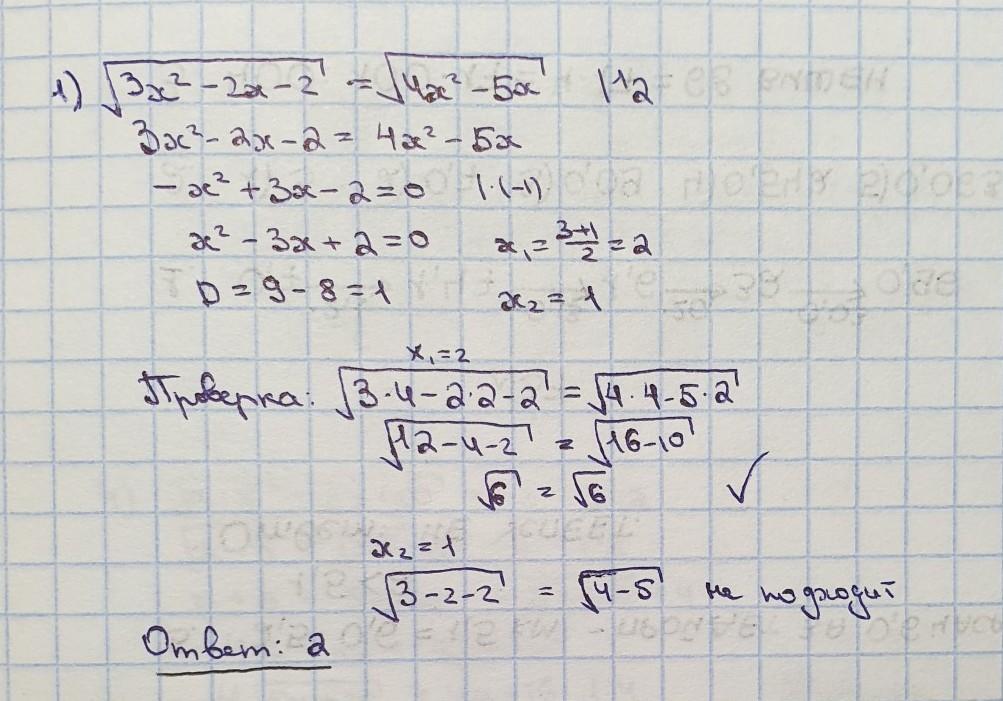 1) √(3x² - 2x - 2) = √(4x² - 5x) |↑2
3x² - 2x - 2 = 4x² - 5x
-x² + 3x - 2 = 0 |·(-1)
x² - 3x + 2 = 0 x₁ = (3+1)/2 = 2
D = 9 - 8 = 1 x₂ = 1
x₁ = 2
Проверка: √(3·4 - 2·2 - 2) = √(4·4 - 5·2)
√(12 - 4 - 2) = √(16 - 10)
√6 = √6 ✓
x₂ = 1
√(3 - 2 - 2) = √(4 - 5) не подходит
Ответ: 2